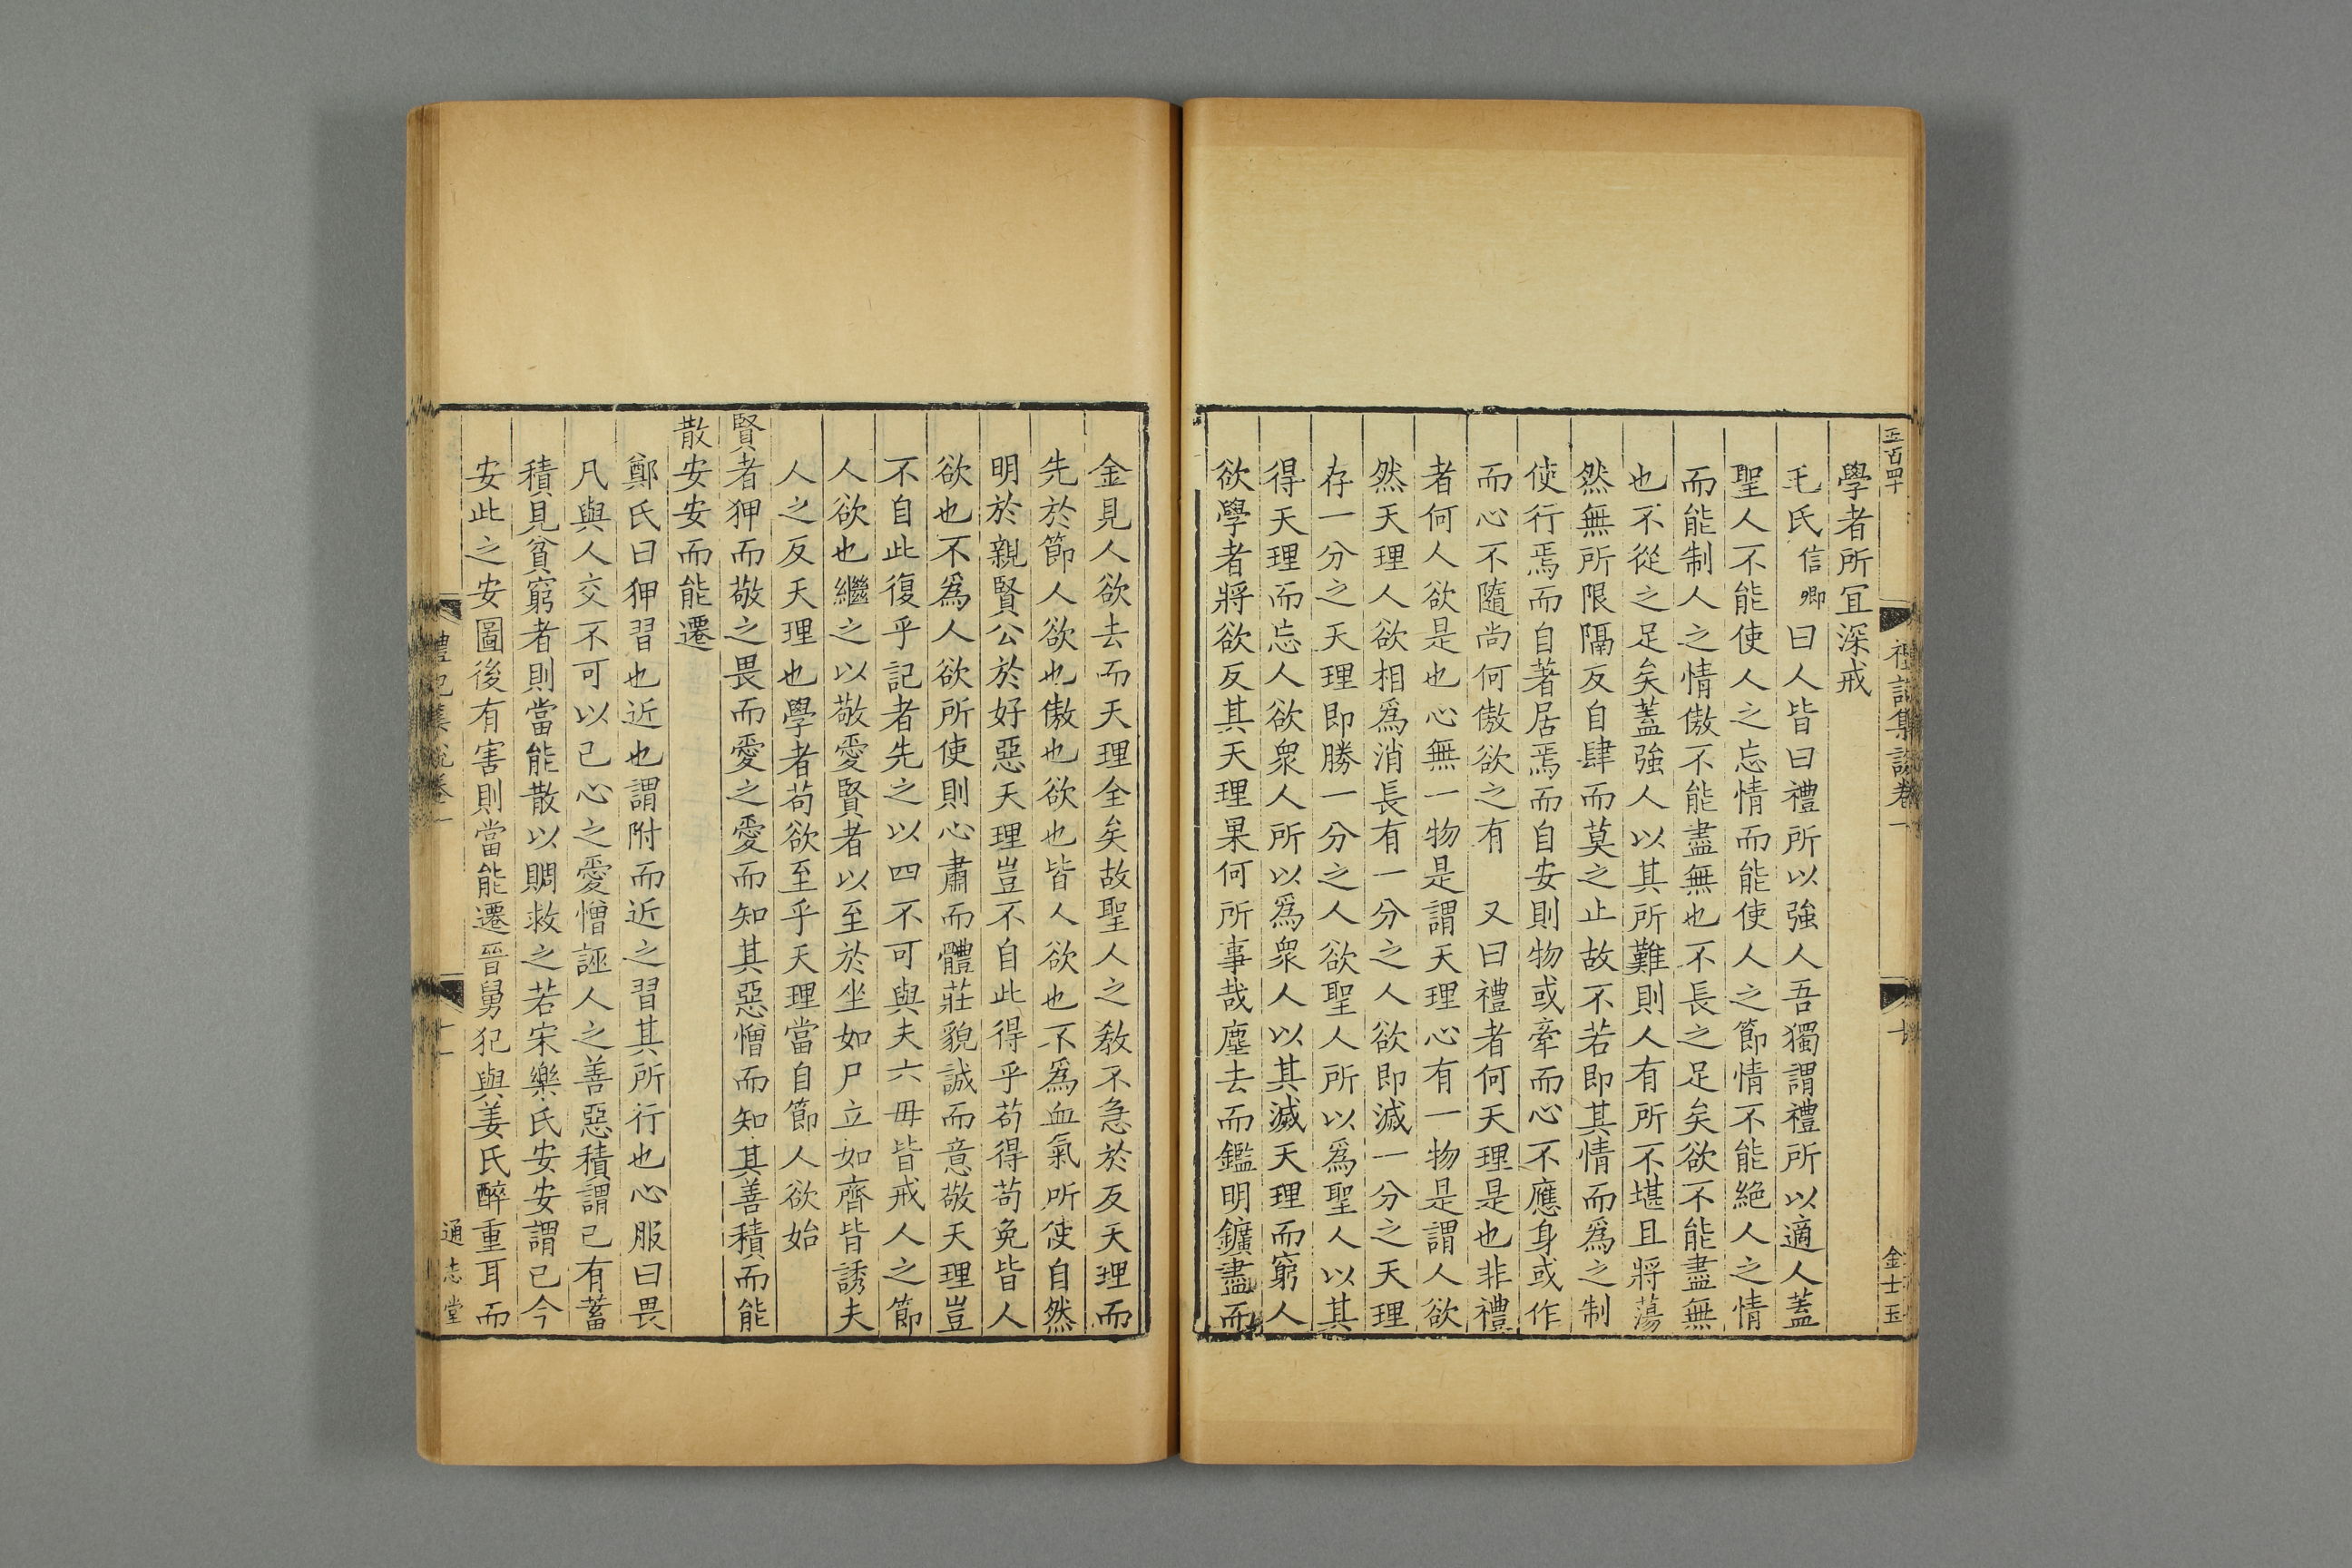 五百四十
禮記集說卷一
金士玉
學者所宜深戒
毛氏信卿曰人皆曰禮所以強人吾獨謂禮所以適人蓋
聖人不能使人之忘情而能使人之節情不能絕人之情
而能制人之情傲不能盡無也不長之足矣欲不能盡無
也不從之足矣蓋強人以其所難則人有所不堪且將蕩
然無所限隔反自肆而莫之止故不若即其情而爲之制
使行焉而自著居焉而自安則物或牽而心不應身或作
而心不隨尚何傲欲之有 又曰禮者何天理是也非禮
者何人欲是也心無一物是謂天理心有一物是謂人欲
然天理人欲相爲消長有一分之人欲即滅一分之天理
存一分之天理即勝一分之人欲聖人所以爲聖人以其
得天理而忘人欲衆人所以爲衆人以其滅天理而窮人
欲學者將欲反其天理果何所事哉塵去而鑑明鑛盡而
金見人欲去而天理全矣故聖人之教不急於反天理而
先於節人欲也傲也欲也皆人欲也不爲血氣所使自然
明於親賢公於好惡天理豈不自此得乎苟得苟免皆人
欲也不爲人欲所使則心肅而體莊貌誠而意敬天理豈
不自此復乎記者先之以四不可與夫六毋皆戒人之節
人欲也繼之以敬愛賢者以至於坐如尸立如齊皆誘夫
人之反天理也學者苟欲至乎天理當自節人欲始
賢者狎而敬之畏而愛之愛而知其惡憎而知其善積而能
散安安而能遷
鄭氏曰狎習也近也謂附而近之習其所行也心服曰畏
凡與人交不可以己心之愛憎誣人之善惡積謂己有蓄
積見貧窮者則當能散以賙救之若宋樂氏安安謂己今
安此之安圖後有害則當能遷晉舅犯與姜氏醉重耳而
禮記集說卷一
十一
通志堂